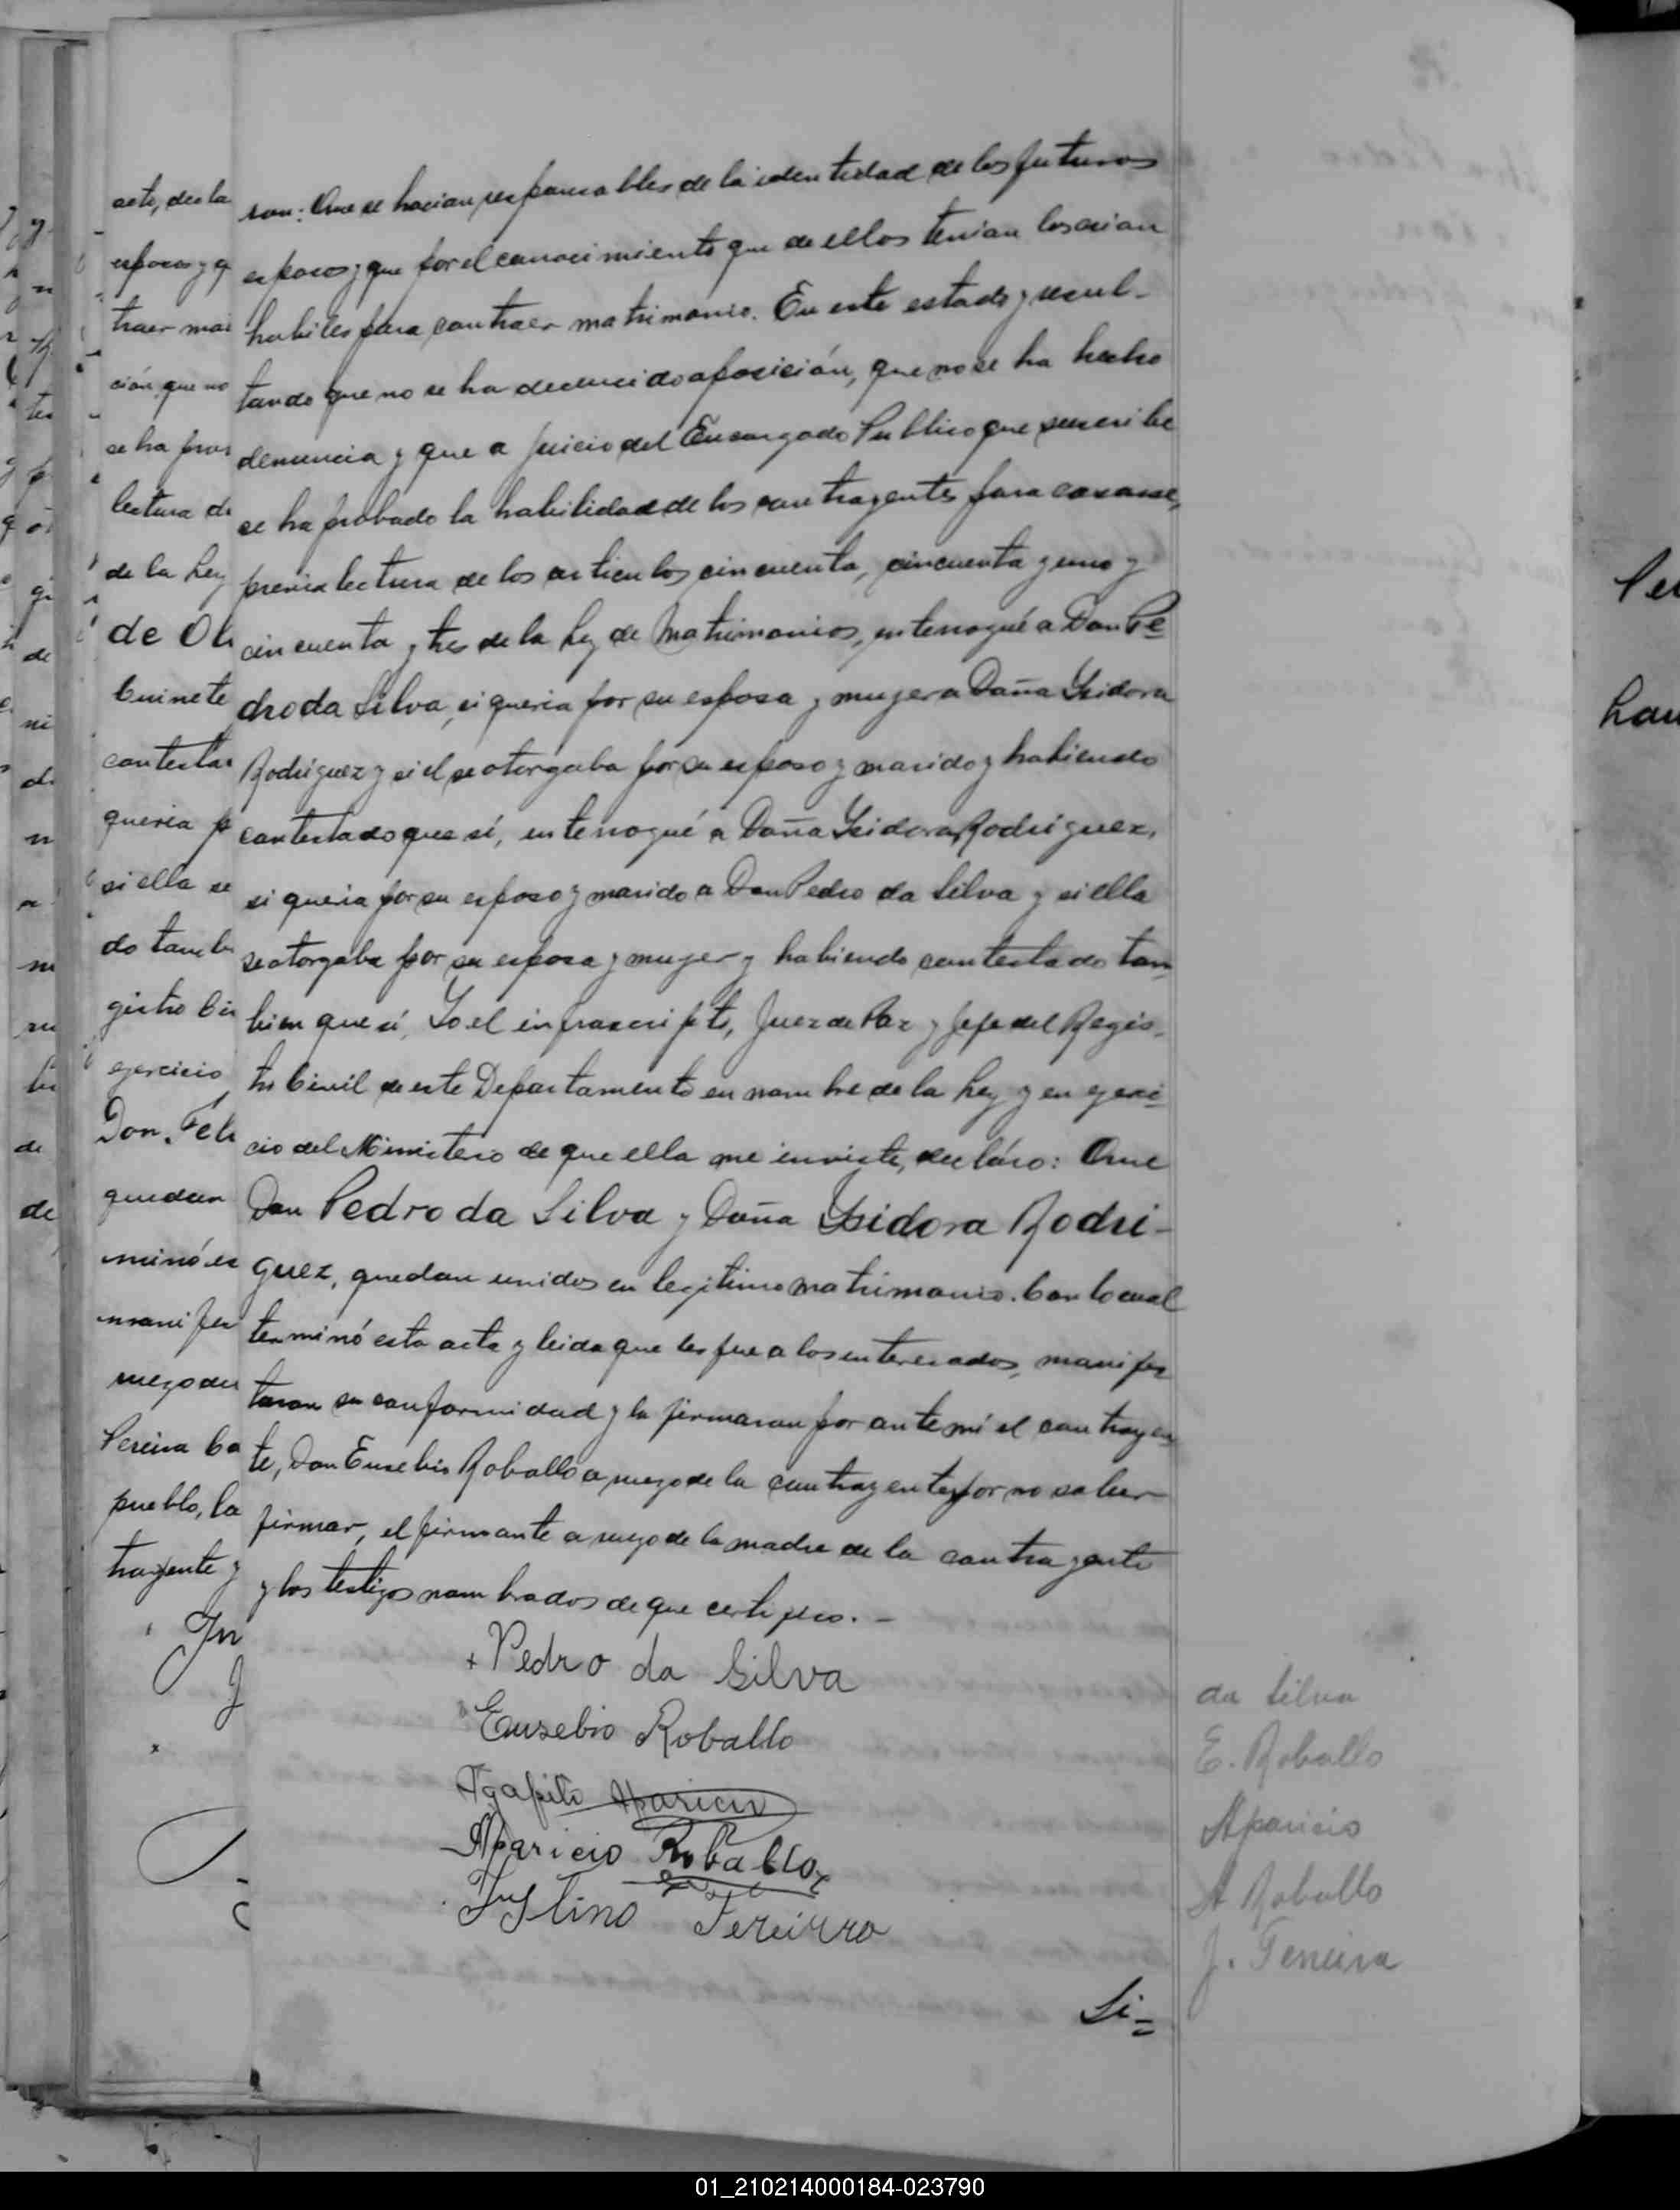 ron: Que se hacian responsables de la identidad de los futuros
esposos y que por el conocimiento que de ellos tenian los creian
habiles para contraer matrimonio. En este estado y resul-
tando que no se ha deducido oposición, que no se ha hecho
denuncia y que a juicio del Encargado Publico que suscribe
se ha probado la habilidad de los contrayentes para casarse,
previa lectura de los articulos cincuenta, cincuenta y uno y
cincuenta y tres de la Ley de Matrimonios, interrogué a Don Pe=
dro da Silva, si queria por su esposa y mujer a Doña Ysidora
Rodriguez y si el se otorgaba por su esposo y marido y habiendo
contestado que sí, interrogué a Doña Ysidora Rodriguez,
si queria por su esposo y marido a Don Pedro da Silva y si ella
se otorgaba por su esposa y mujer y habiendo contestado tam
bien que sí, Yo el infrascripto, Juez de Paz y Jefe del Regis-
tro Civil de este Departamento en nombre de la Ley y en ejerci=
cio del Ministerio de que ella me inviste, declaro: Que
Don Pedro da Silva y Doña Ysidora Rodri-
guez, quedan unidos en legitimo matrimonio. Con lo cual
terminó esta acta y leida que les fue a los interesados, manifes
taron su conformidad y la firmaron por ante mi el contrayen
te, Don Eusebio Roballo a ruego de la contrayente por no saber
firmar, el firmante a ruego de la madre de la contrayente
y los testigos nombrados de que certifico. -
Pedro da Silva
Eusebio Roballo
Agapito Aparicio
Aparicio Roballo
Justino Fereirra
da Silva
E. Roballo
Aparicio
A Roballo
J. Ferreira
Si=
acto, decla
esposos y q
traer mat
ción, que no
se ha pro
lectura de
de la Ley
de Ol
Cuinete
contesta
queria p
si ella se
do tamb
gistro Civ
ejercicio
Don Feli
quedan
minó es
manifes
ruego de
Pereira Ca
pueblo, la
trayente y
01_210214000184-023790